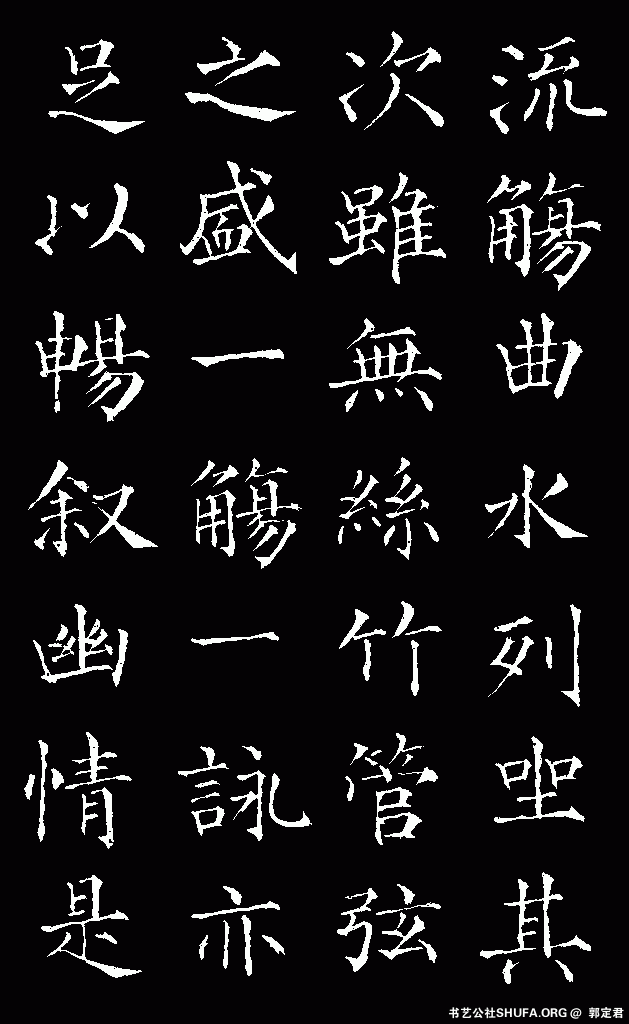 流觴曲水列坐其
次雖無絲竹管弦
之盛一觴一詠亦
足以暢叙幽情是
书艺公社SHUFA.ORG @ 郭定君